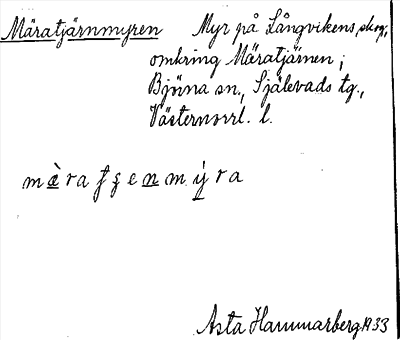 Märatjärnmyren Myr på Långvikens skog,
omkring Märatjärnen;
Björna sn., Själevads tg.,
Västernorrl. l.
mæ̀ra tʂenmýra
Asta Hammarberg 1933